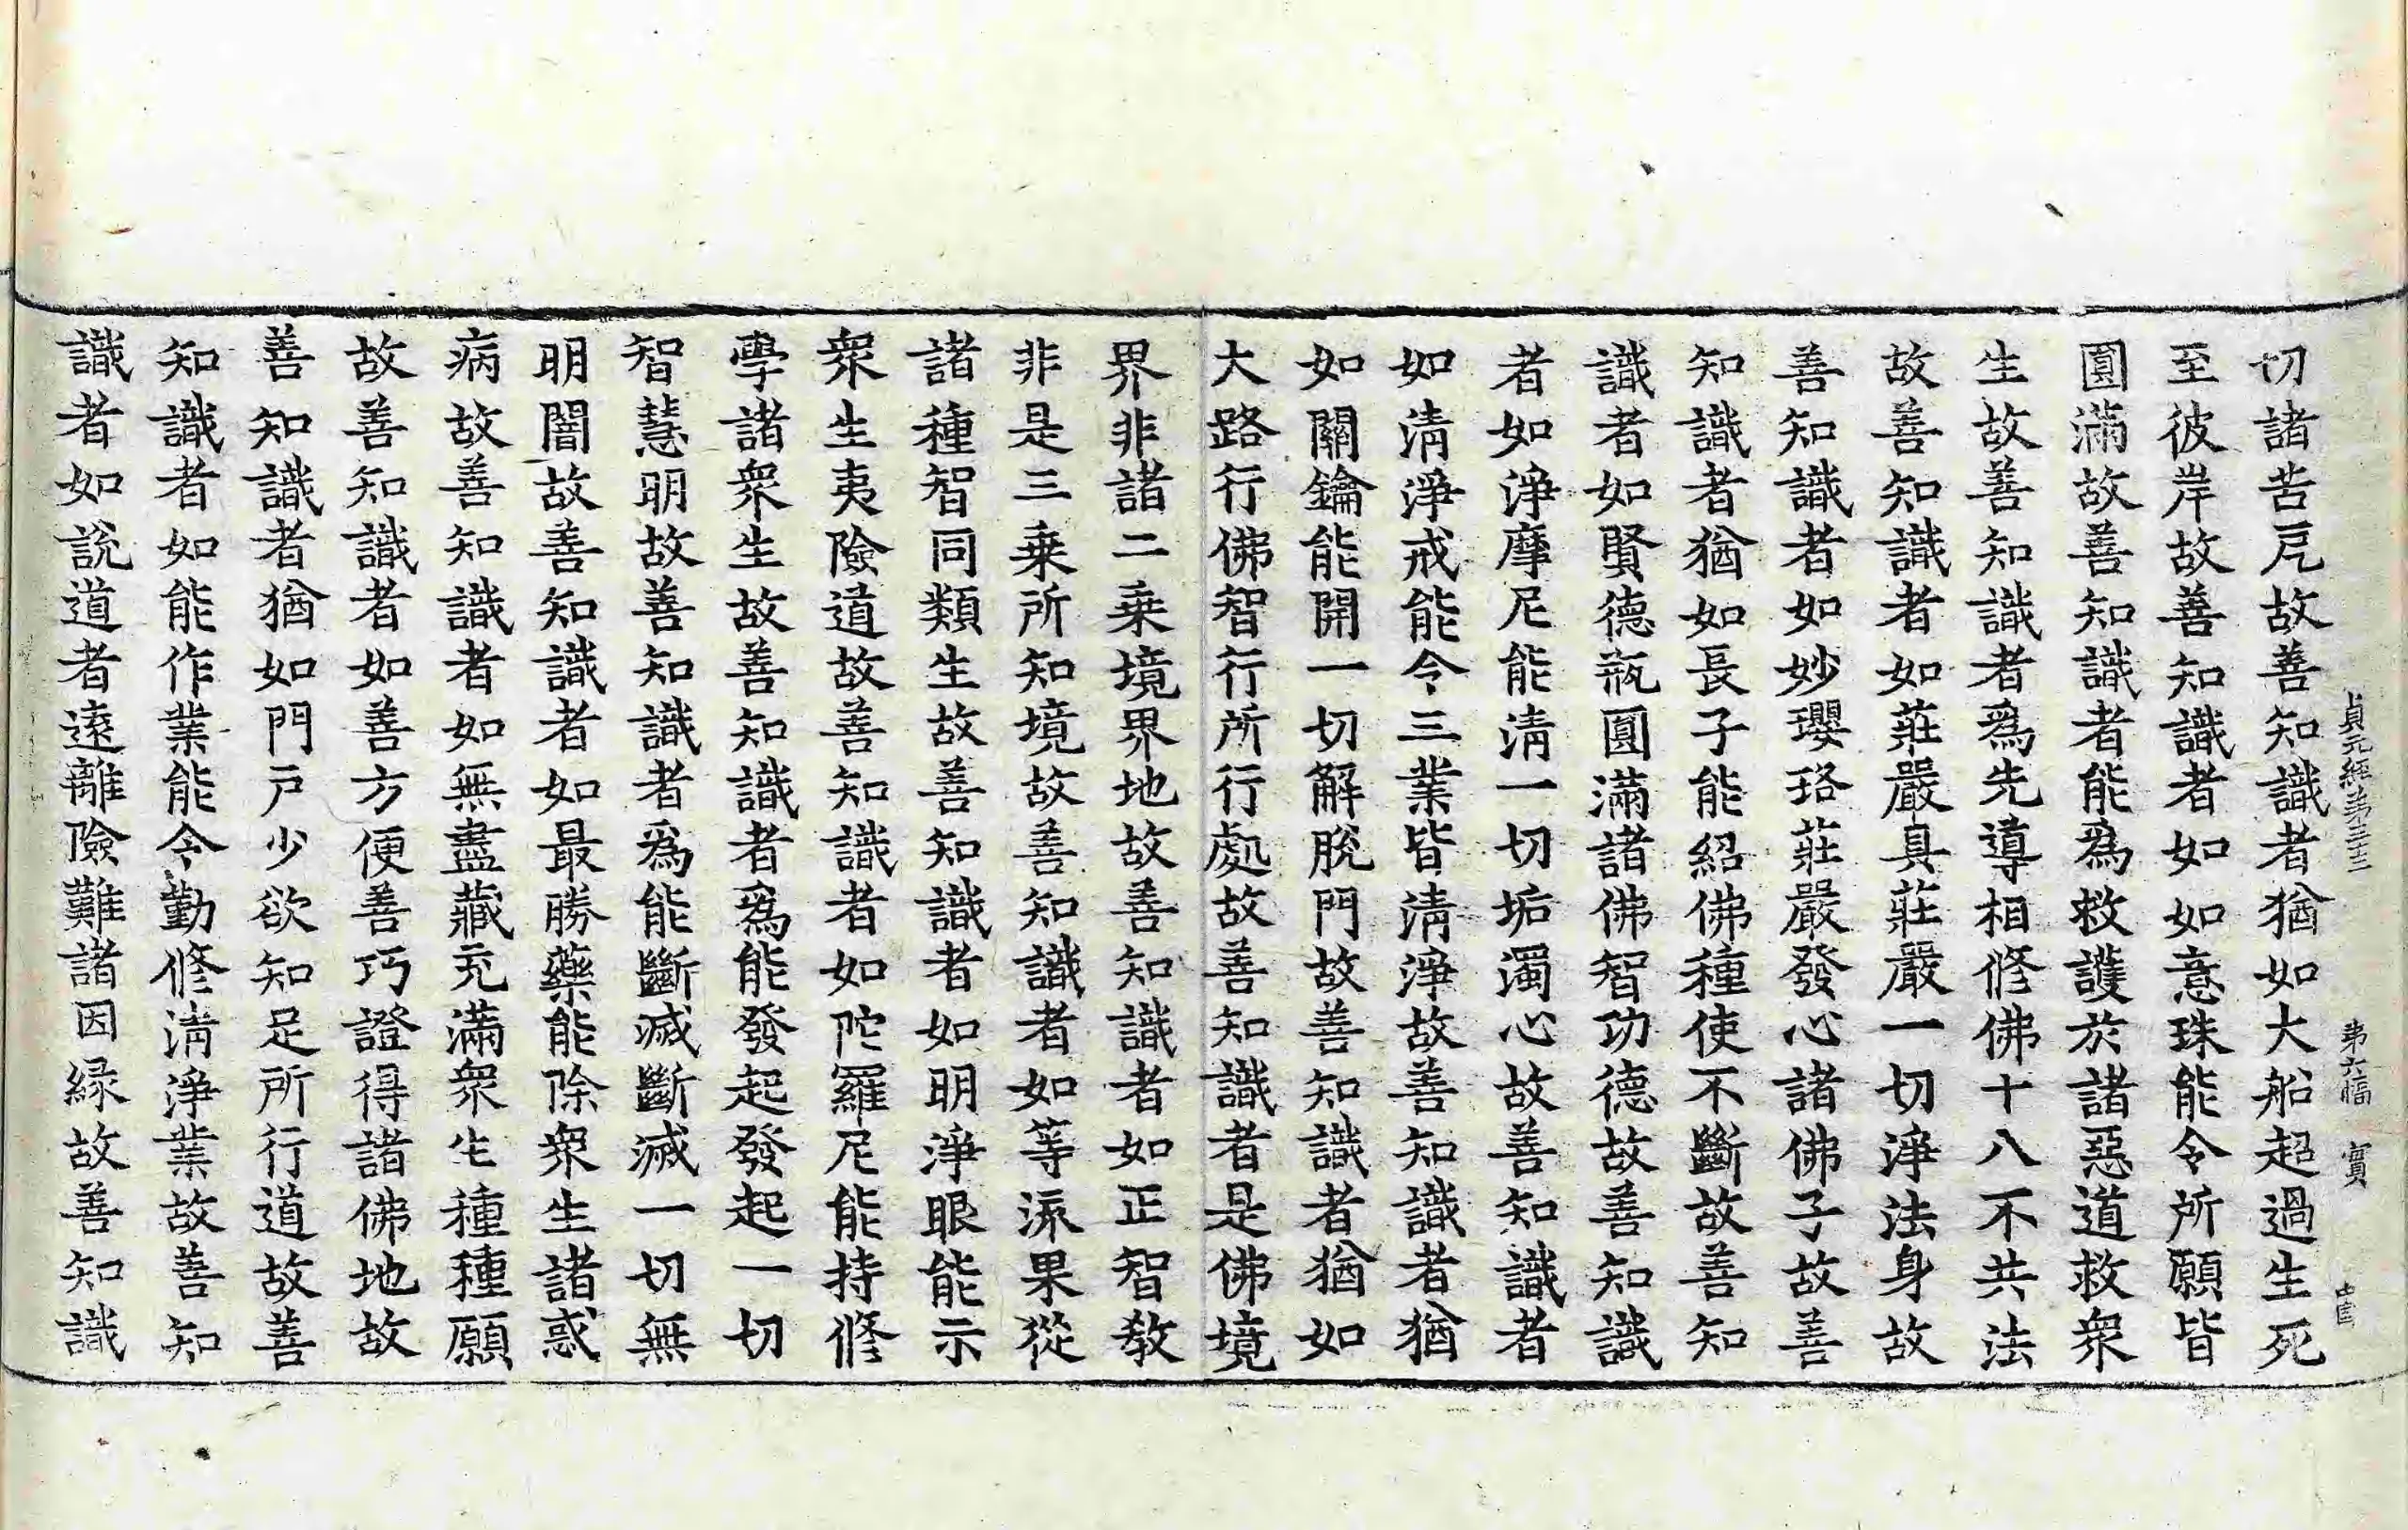 貞元經第三十三　第六幅　實
切諸苦戹故善知識者猶如大船超過生死
至彼岸故善知識者如如意珠能令所願皆
圓滿故善知識者能爲救護於諸惡道救衆
生故善知識者爲先導相修佛十八不共法
故善知識者如莊嚴具莊嚴一切淨法身故
善知識者如妙瓔珞莊嚴發心諸佛子故善
知識者猶如長子能紹佛種使不斷故善知
識者如賢德瓶圓滿諸佛智功德故善知識
者如淨摩尼能淸一切垢濁心故善知識者
如淸淨戒能令三業皆淸淨故善知識者猶
如關鑰能開一切解脫門故善知識者猶如
大路行佛智行所行處故善知識者是佛境
界非諸二乗境界地故善知識者如正智教
非是三乗所知境故善知識者如等流果從
諸種智同類生故善知識者如明淨眼能示
衆生夷險道故善知識者如陀羅尼能持修
學諸衆生故善知識者爲能發起發起一切
智慧明故善知識者爲能斷滅斷滅一切無
明闇故善知識者如最勝藥能除衆生諸惑
病故善知識者如無盡藏充滿衆生種種願
故善知識者如善方便善巧證得諸佛地故
善知識者猶如門戸少欲知足所行道故善
知識者如能作業能令勤修淸淨業故善知
識者如說道者遠離險難諸因緣故善知識